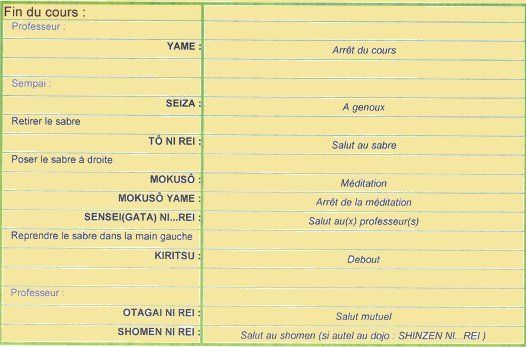 Fin du cours :
Professeur :
YAME : Arrêt du cours
Sempai :
SEIZA : A genoux
Retirer le sabre
TÔ NI REI : Salut au sabre
Poser le sabre à droite
MOKUSÔ : Méditation
MOKUSÔ YAME : Arrêt de la méditation
SENSEI(GATA) NI...REI : Salut au(x) professeur(s)
Reprendre le sabre dans la main gauche
KIRITSU : Debout
Professeur :
OTAGAI NI REI : Salut mutuel
SHOMEN NI REI : Salut au shomen (si autel au dojo : SHINZEN NI...REI )